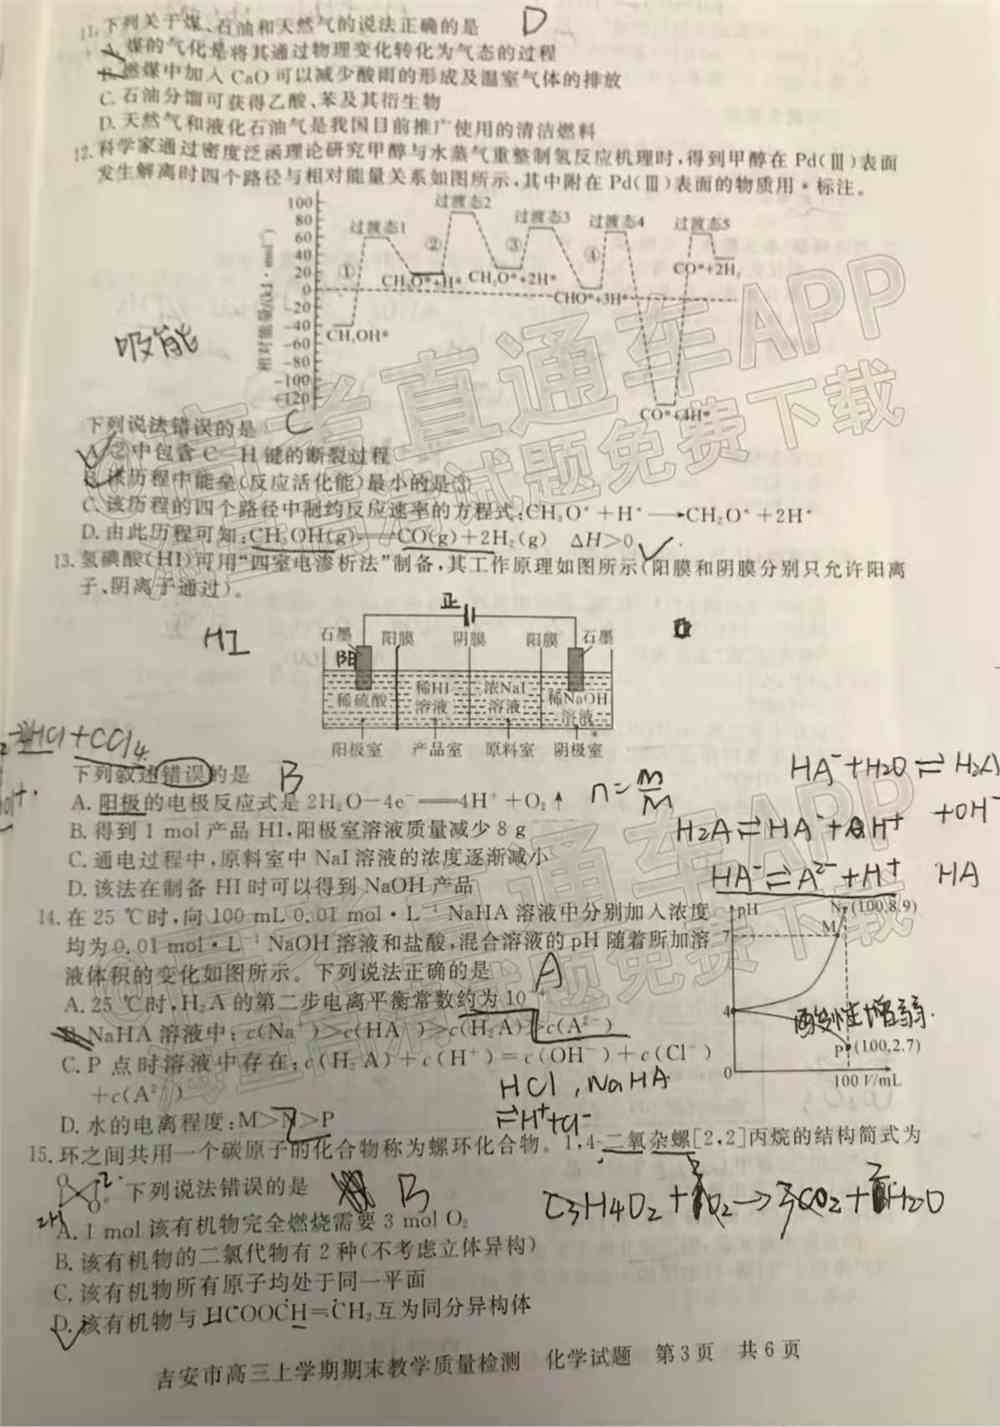 11.下列关于煤、石油和天然气的说法正确的是 D
A.煤的气化是将其通过物理变化转化为气态的过程
B.燃煤中加入CaO可以减少酸雨的形成及温室气体的排放
C.石油分馏可获得乙酸、苯及其衍生物
D.天然气和液化石油气是我国目前推广使用的清洁燃料
12.科学家通过密度泛函理论研究甲醇与水蒸气重整制氢反应机理时,得到甲醇在Pd(Ⅲ)表面
发生解离时四个路径与相对能量关系如图所示,其中附在Pd(Ⅲ)表面的物质用*标注。
100
80
60
40
20
0
-20
-40
-60
-80
-100
-120
过渡态1
过渡态2
过渡态3
过渡态4
过渡态5
① ② ③ ④
CH₃OH*
CH₃O*+H*
CH₂O*+2H*
CHO*+3H*
CO*+4H*
CO*+2H₂
吸能
下列说法错误的是 C
A.②中包含C—H键的断裂过程
B.该历程中能垒(反应活化能)最小的是③
C.该历程的四个路径中制约反应速率的方程式:CH₃O*+H*⟶CH₂O*+2H*
D.由此历程可知:CH₃OH(g)══CO(g)+2H₂(g) ΔH>0
13.氢碘酸(HI)可用“四室电渗析法”制备,其工作原理如图所示(阳膜和阴膜分别只允许阳离
子、阴离子通过)。
正
HI
石墨 阳膜 阴膜 阳膜 石墨
阳
稀硫酸
稀HI溶液
浓NaI溶液
稀NaOH溶液
阳极室 产品室 原料室 阴极室
HCl+CCl₄
下列叙述错误的是 B
A.阳极的电极反应式是2H₂O-4e⁻══4H⁺+O₂↑
B.得到1 mol产品HI,阳极室溶液质量减少8 g
C.通电过程中,原料室中NaI溶液的浓度逐渐减小
D.该法在制备HI时可以得到NaOH产品
n=m/M
HA⁻+H2O⇌H2A
+OH⁻
H2A⇌HA⁻+H⁺
HA⁻⇌A²⁻+H⁺ HA
14.在25℃时,向100 mL 0.01 mol·L⁻¹ NaHA溶液中分别加入浓度
均为0.01 mol·L⁻¹ NaOH溶液和盐酸,混合溶液的pH随着所加溶
液体积的变化如图所示。下列说法正确的是 A
A.25℃时,H₂A的第二步电离平衡常数约为10⁻⁴
B.NaHA溶液中:c(Na⁺)>c(HA⁻)>c(H₂A)>c(A²⁻)
C.P点时溶液中存在:c(H₂A)+c(H⁺)=c(OH⁻)+c(Cl⁻)
+c(A²⁻)
D.水的电离程度:M>N>P
pH
7
4
0
N(100,8.9)
M
P(100,2.7)
100 V/mL
酸性增弱.
HCl,NaHA
⇌H⁺+Cl⁻
15.环之间共用一个碳原子的化合物称为螺环化合物。1,4-二氧杂螺[2,2]丙烷的结构简式为
O O 下列说法错误的是 B
A.1 mol该有机物完全燃烧需要3 mol O₂
B.该有机物的二氯代物有2种(不考虑立体异构)
C.该有机物所有原子均处于同一平面
D.该有机物与HCOOCH═CH₂互为同分异构体
C3H4O2+ O2→3CO2+ H2O
吉安市高三上学期期末教学质量检测 化学试题 第3页 共6页